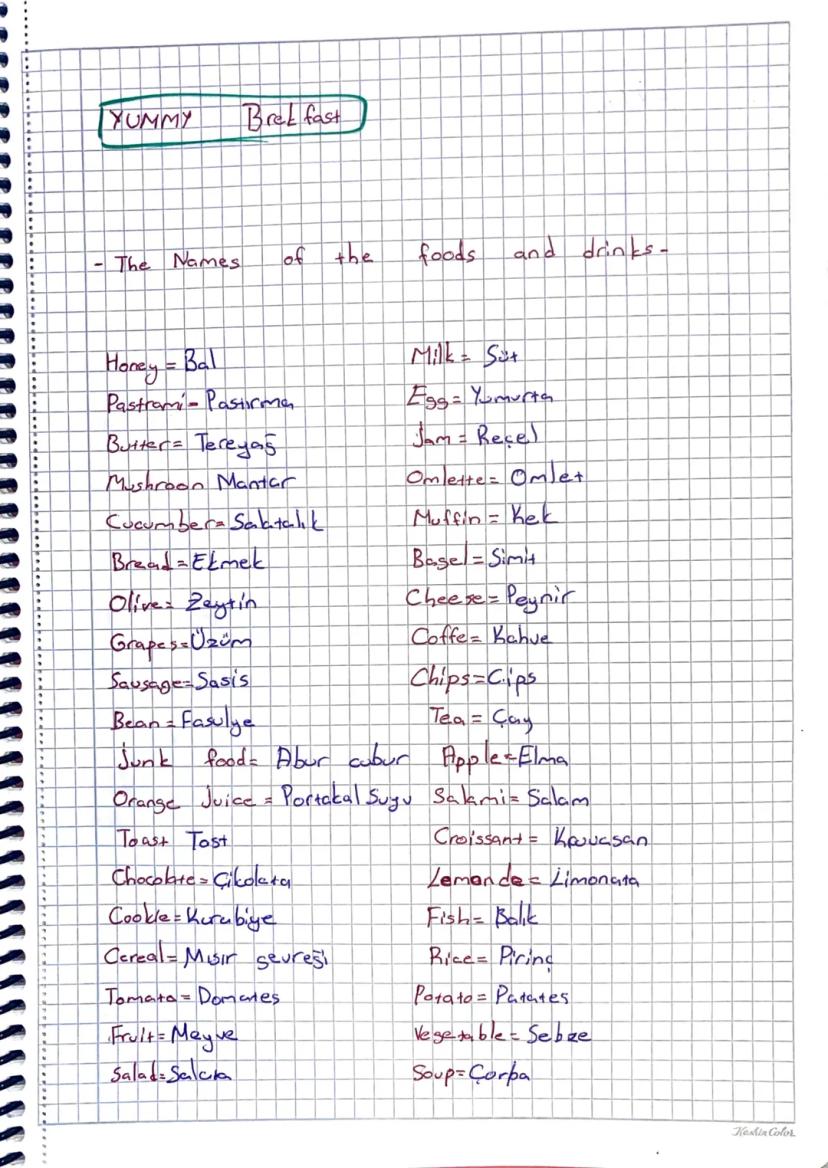 YUMMY Brekfast
- The Names of the foods and drinks -
Honey = Bal
Pastrami - Pastırma
Butter = Tereyağ
Mushroon Mantar
Cucumber = Salatalık
Bread = Ekmek
Olive = Zeytin
Grapes = Üzüm
Sausage = Sasis
Bean = Fasulye
junk food = Abur cubur
Orange Juice = Portakal Suyu
Toast Tost
Chocolate = Çikolata
Cookie = Kurabiye
Cereal = Mısır gevreği
Tomato = Domates
Fruit = Meyve
Salad = Salata
Milk = Süt
Egg = Yumurta
Jam = Reçel
Omlette = Omlet
Muffin = Kek
Bagel = Simit
Cheese = Peynir
Coffe = Kahve
Chips = Cips
Tea = Çay
Apple = Elma
Salami = Salam
Croissant = Kruvasan
Lemonde = Limonata
Fish = Balık
Rice = Pirinç
Potato = Patates
Vegetable = Sebze
Soup = Çorba
KeskinColor